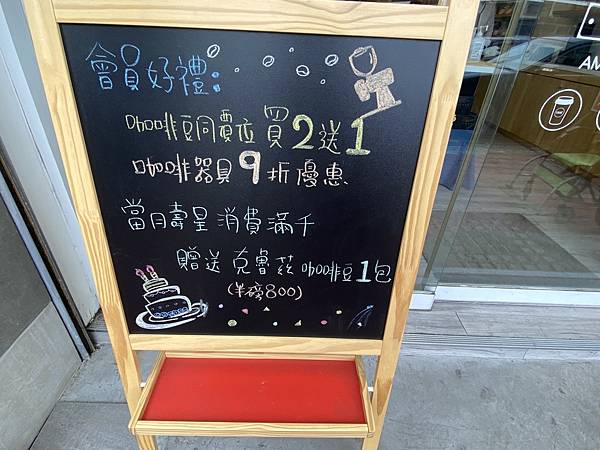 會員好禮:
咖啡豆同價位買2送1
咖啡器具9折優惠
當月壽星消費滿千
贈送克魯茲咖啡豆1包
(半磅800)
AM